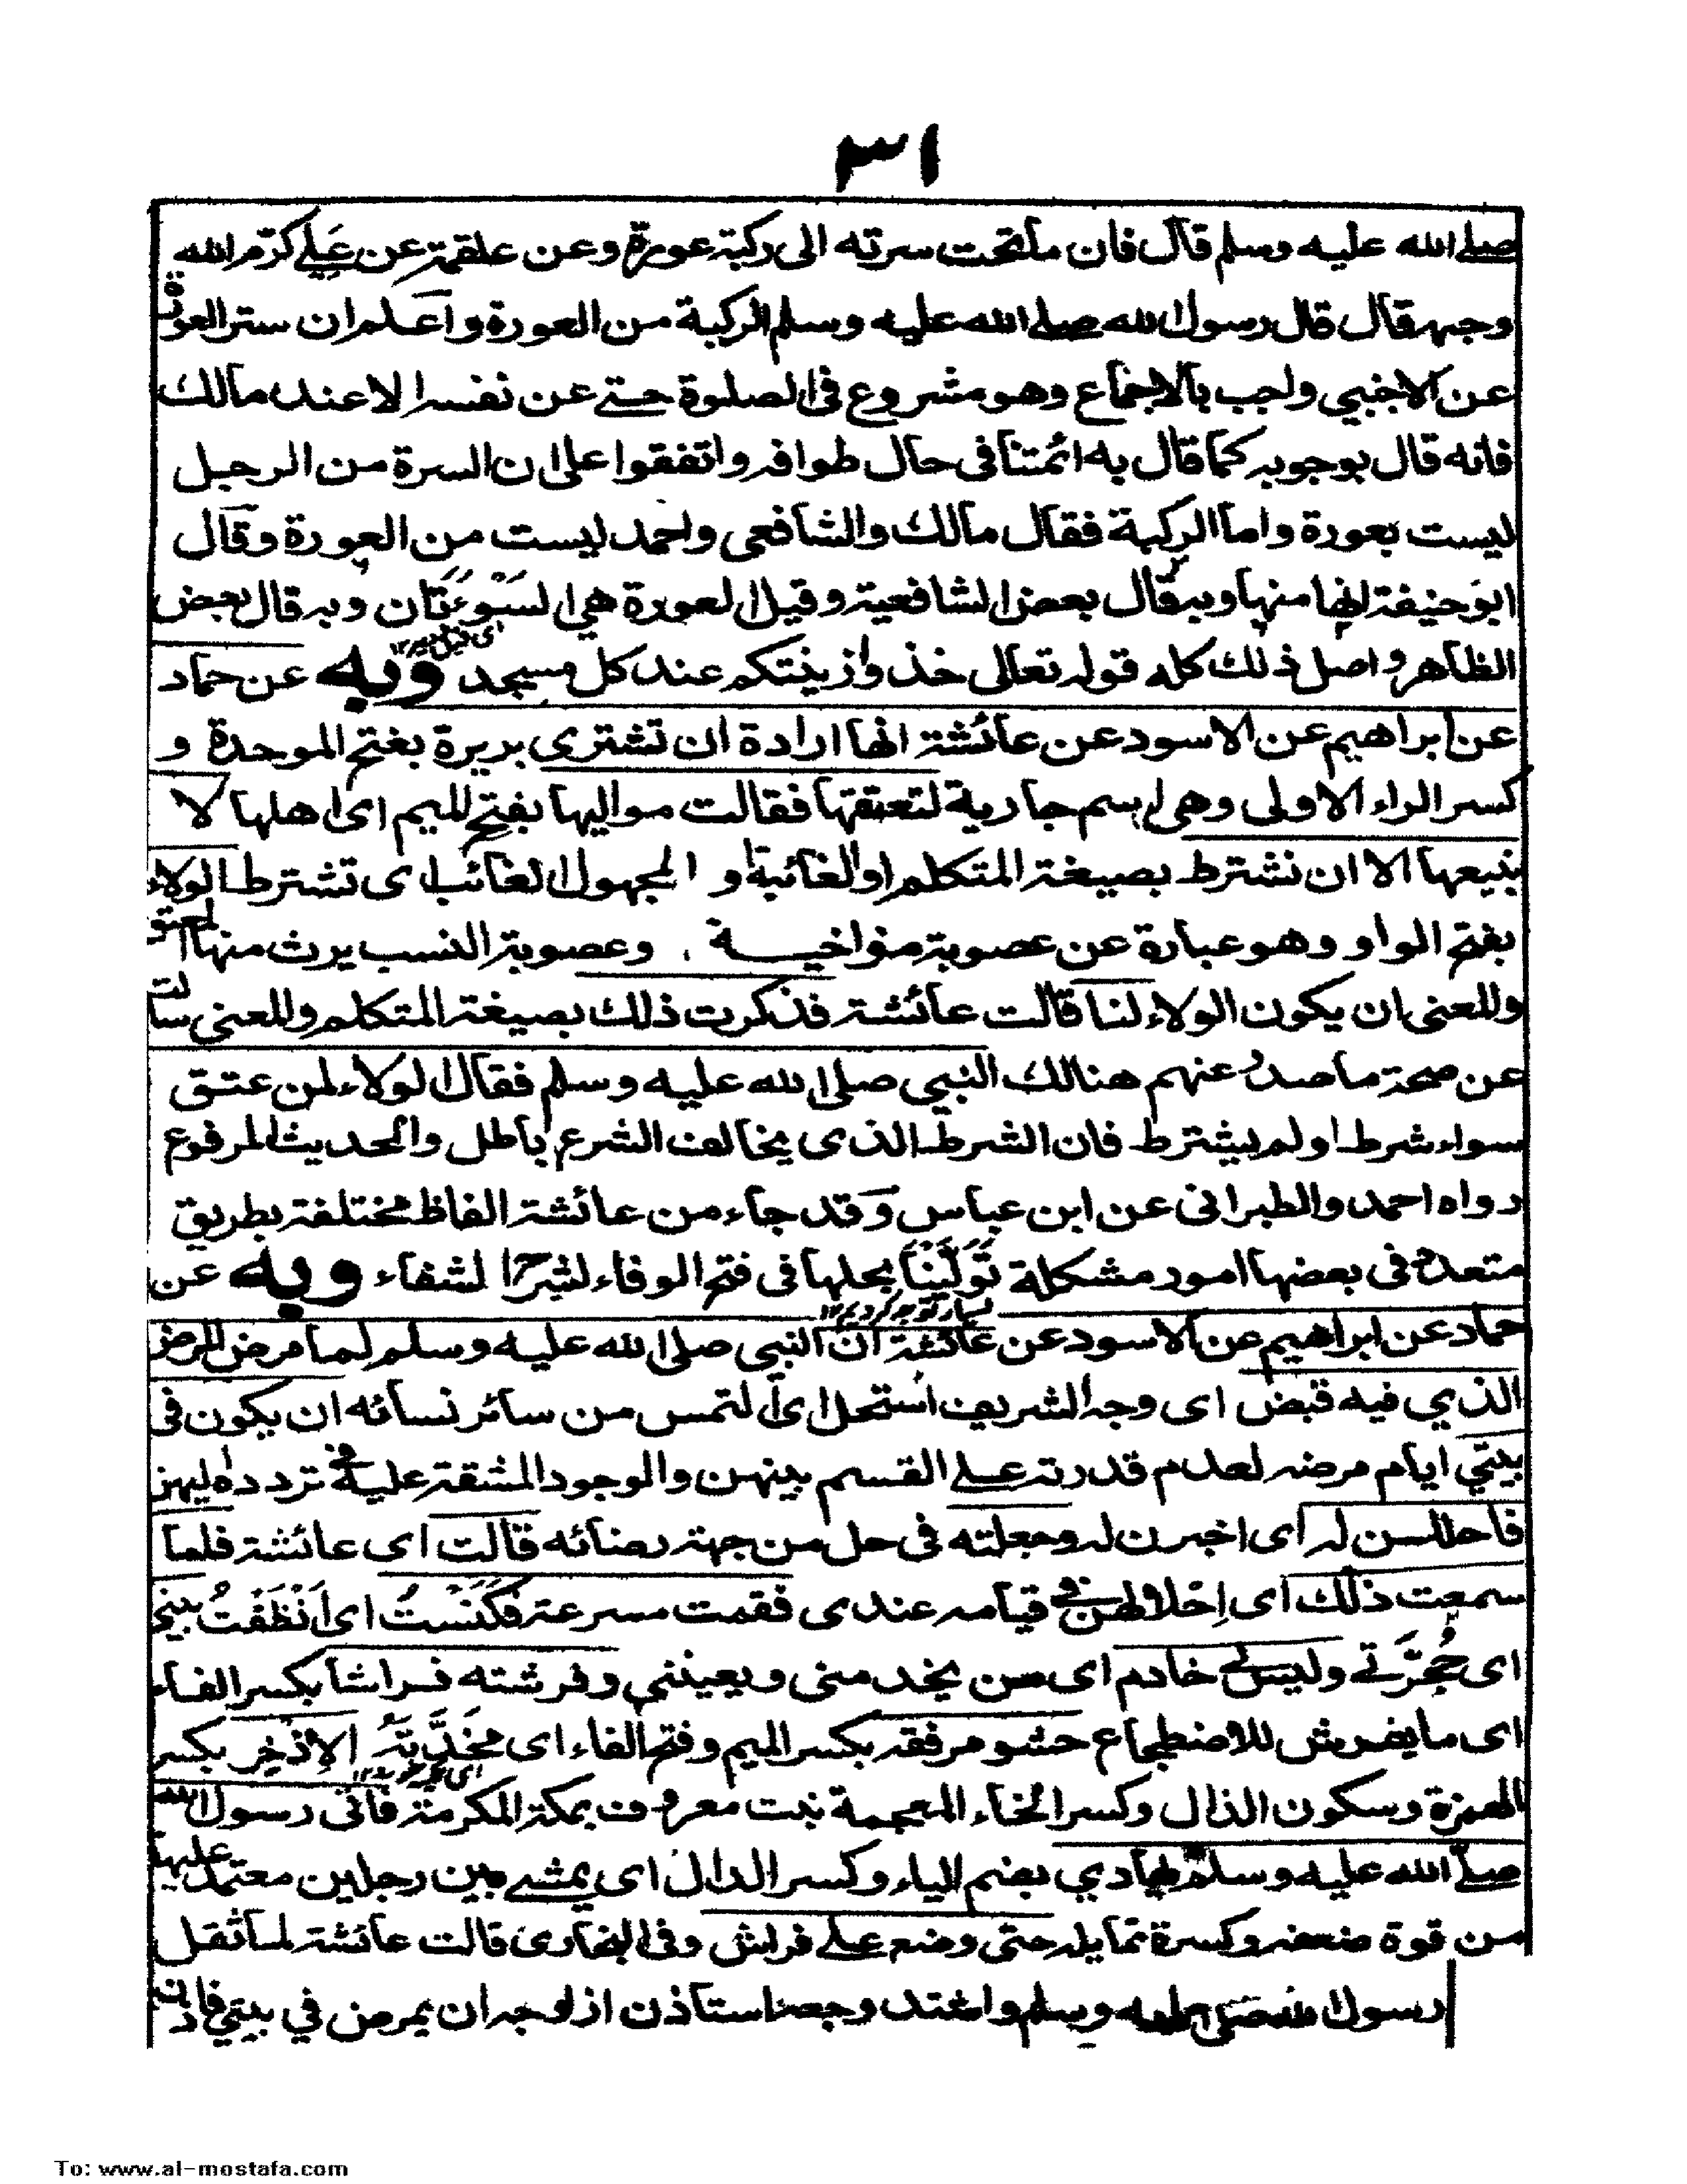 ٣١
صلے الله عليه وسلم قال فان ما تحت سرته الى ركبته عورة وعن علقمة عن عَلِي كرّم الله
وجهه قال قال رسول الله صلے الله عليه وسلم الركبة من العورة واعلم ان ستر العورة
عن الاجنبي واجب بالاجماع وهو مشروع فى الصلوة حتے عن نفسه الا عند مالك
فانه قال بوجوبه كما قال به ائمتنا فى حال طوافه واتفقوا على ان السرة من الرجل
ليست بعورة واما الركبة فقال مالك والشافعى واحمد ليست من العورة وقال
ابو حنيفة انها منها وبه قال بعض الشافعية وقيل العورة هي السَوْءَتَان وبه قال بعض
الظاهر واصل ذلك كله قوله تعالى خذوا زينتكم عند كل مسجد وبه عن حماد
عن ابراهيم عن الاسود عن عائشة انها ارادة ان تشترى بريرة بفتح الموحدة و
كسر الراء الاولى وهى اسم جارية لتعتقها فقالت مواليها بفتح الميم اى اهلها لا
نبيعها الا ان نشترط بصيغة المتكلم او الغائبة و المجهول الغائب اى تشترط الولاء
بفتح الواو وهو عبارة عن عصوبة متواخية وعصوبة النسب يرث منها المعتق
والمعنى ان يكون الولاء لنا قالت عائشة فذكرت ذلك بصيغة المتكلم والمعنى سالت
عن صحة ما صدر عنهم هنالك النبي صلى الله عليه وسلم فقال الولاء لمن عتق
سواء شرط او لم يشترط فان الشرط الذى يخالف الشرع باطل والحديث المرفوع
رواه احمد والطبرانى عن ابن عباس وقد جاء من عائشة الفاظ مختلفة بطريق
متعدة فى بعضها امور مشكلة تَوَلَّيْنَا بحلها فى فتح الوفاء لشرح الشفاء وبه عن
حماد عن ابراهيم عن الاسود عن عائشة ان النبي صلى الله عليه وسلم لما مرض المرض
الذي فيه قبض اى وجه الشريف استحل اى التمس من سائر نسائه ان يكون فى
بيتي ايام مرضه لعدم قدرته علے القسم بينهن والوجود المشقة عليه فى تردده اليهن
فاحللن له اى اخبرن له وجعلته فى حل من جهة رضائه قالت اى عائشة فلما
سمعت ذلك اى اِحْلالهن فى قيامه عندى فقمت مسرعة فكَنَسْتُ اى اَنْظَفْتُ بيتى
اى حُجْرَتى وليس لى خادم اى من يخدمنى ويعيننى وفرشته فراشا بكسر الفاء
اى ما يفرش للاضطجاع حشو مرفقه بكسر الميم وفتح الفاء اى مِخَدَّتِهُ الاِذْخِر بكسر
الهمزة وسكون الذال وكسر الخاء المعجمة نبت معروف بمكة المكرمة فاتى رسول الله
صلے الله عليه وسلم يهادي بضم الياء وكسر الدال اى يمشے بين رجلين معتمد عليهما
من قوة ضعفه وكسرة تمايله حتى وضع علے فراش وفى البخارى قالت عائشة لما ثقل
رسول الله صلى الله عليه وسلم واشتد وجعه استاذن ازواجه ان يمرض في بيتي فاذن
To: www.al-mostafa.com